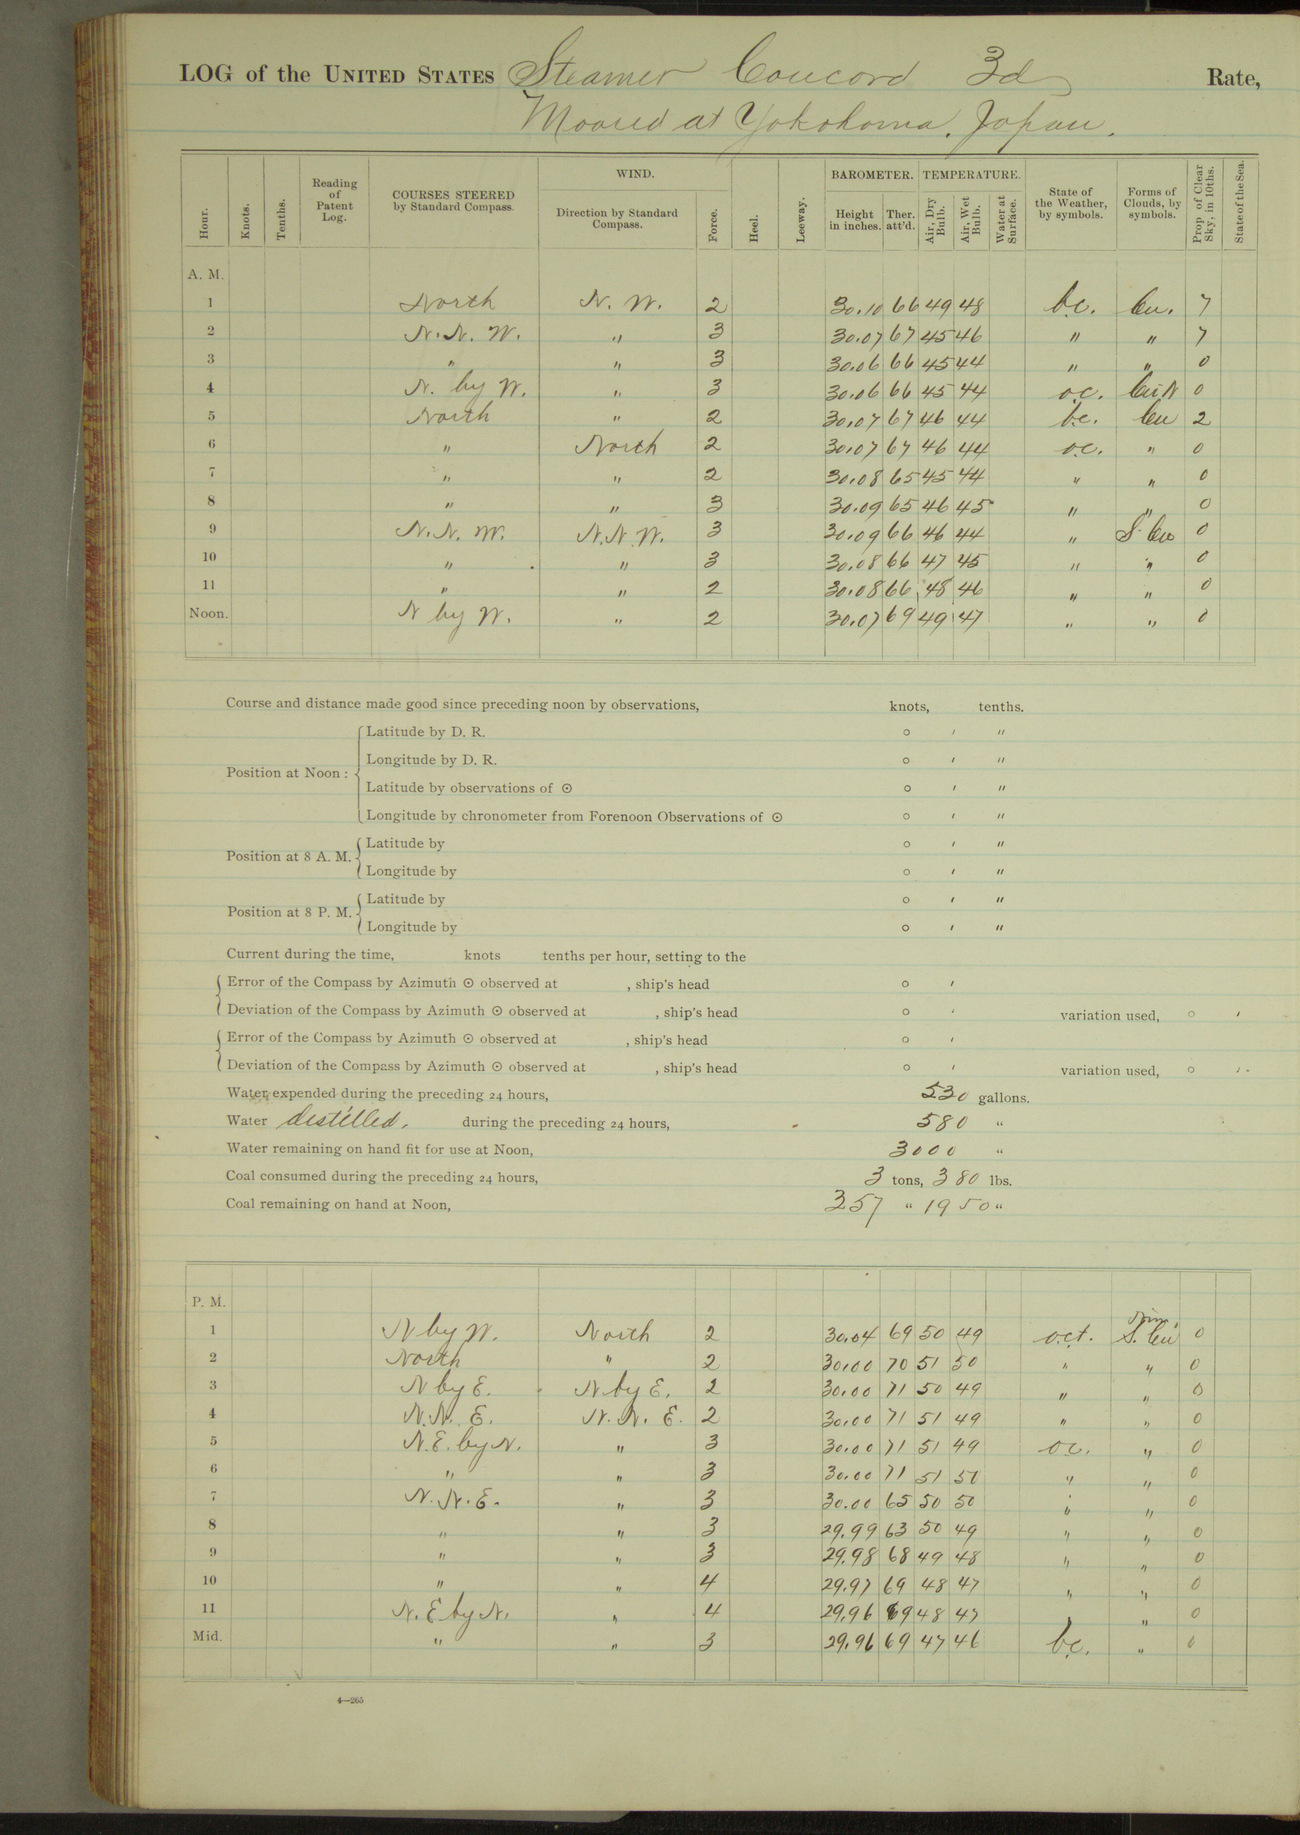 LOG of the UNITED STATES Steamer Concord 3d Rate,
Moored at Yokohama, Japan.
Hour. Knots. Tenths. Reading of Patent Log. COURSES STEERED by Standard Compass. WIND. Direction by Standard Compass. Force. Heel. Leeway. BAROMETER. Height in inches. Ther. att'd. TEMPERATURE. Air, Dry Bulb. Air, Wet Bulb. Water at Surface. State of the Weather, by symbols. Forms of Clouds, by symbols. Prop. of Clear Sky, in 10ths. State of the Sea.
A. M.
1 North N. W. 2 30.10 66 49 48 b.c. Cu. 7
2 N.N. W. " 3 30.07 67 45 46 " " 7
3 " " 3 30.06 66 45 44 " " 0
4 N. by W. " 3 30.06 66 45 44 o.c. Cu N 0
5 North " 2 30.07 67 46 44 b.c. Cu 2
6 " North 2 30.07 67 46 44 o.c. " 0
7 " " 2 30.08 65 45 44 " " 0
8 " " 3 30.09 65 46 45 " " 0
9 N.N. W. N.N.W. 3 30.09 66 46 44 " S. Cu 0
10 " " 3 30.08 66 47 45 " " 0
11 " " 2 30.08 66 48 46 " " 0
Noon. N by W. " 2 30.07 69 49 47 " " 0
Course and distance made good since preceding noon by observations, knots, tenths.
Position at Noon :
Latitude by D. R. ° ′ ″
Longitude by D. R. ° ′ ″
Latitude by observations of ☉ ° ′ ″
Longitude by chronometer from Forenoon Observations of ☉ ° ′ ″
Position at 8 A. M.
Latitude by ° ′ ″
Longitude by ° ′ ″
Position at 8 P. M.
Latitude by ° ′ ″
Longitude by ° ′ ″
Current during the time, knots tenths per hour, setting to the
Error of the Compass by Azimuth ☉ observed at , ship's head ° ′
Deviation of the Compass by Azimuth ☉ observed at , ship's head ° ′ variation used, ° ′
Error of the Compass by Azimuth ☉ observed at , ship's head ° ′
Deviation of the Compass by Azimuth ☉ observed at , ship's head ° ′ variation used, ° ′
Water expended during the preceding 24 hours, 530 gallons.
Water destilled. during the preceding 24 hours, 580 "
Water remaining on hand fit for use at Noon, 3000 "
Coal consumed during the preceding 24 hours, 3 tons, 380 lbs.
Coal remaining on hand at Noon, 357 " 1950 "
P. M.
Nim.
1 N by W. North 2 30.04 69 50 49 o.c.t. S. Cu 0
2 North " 2 30.00 70 51 50 " " 0
3 N by E. N by E. 2 30.00 71 50 49 " " 0
4 N.N. E. N. N. E. 2 30.00 71 51 49 " " 0
5 N.E. by N. " 3 30.00 71 51 49 o.c. " 0
6 " " 3 30.00 71 51 50 " " 0
7 N. N. E. " 3 30.00 65 50 50 " " 0
8 " " 3 29.99 63 50 49 " " 0
9 " " 3 29.98 68 49 48 " " 0
10 " " 4 29.97 69 48 47 " " 0
11 N. E by N. " 4 29.96 69 48 47 " " 0
Mid. " " 3 29.96 69 47 46 b.c. " 0
4—265